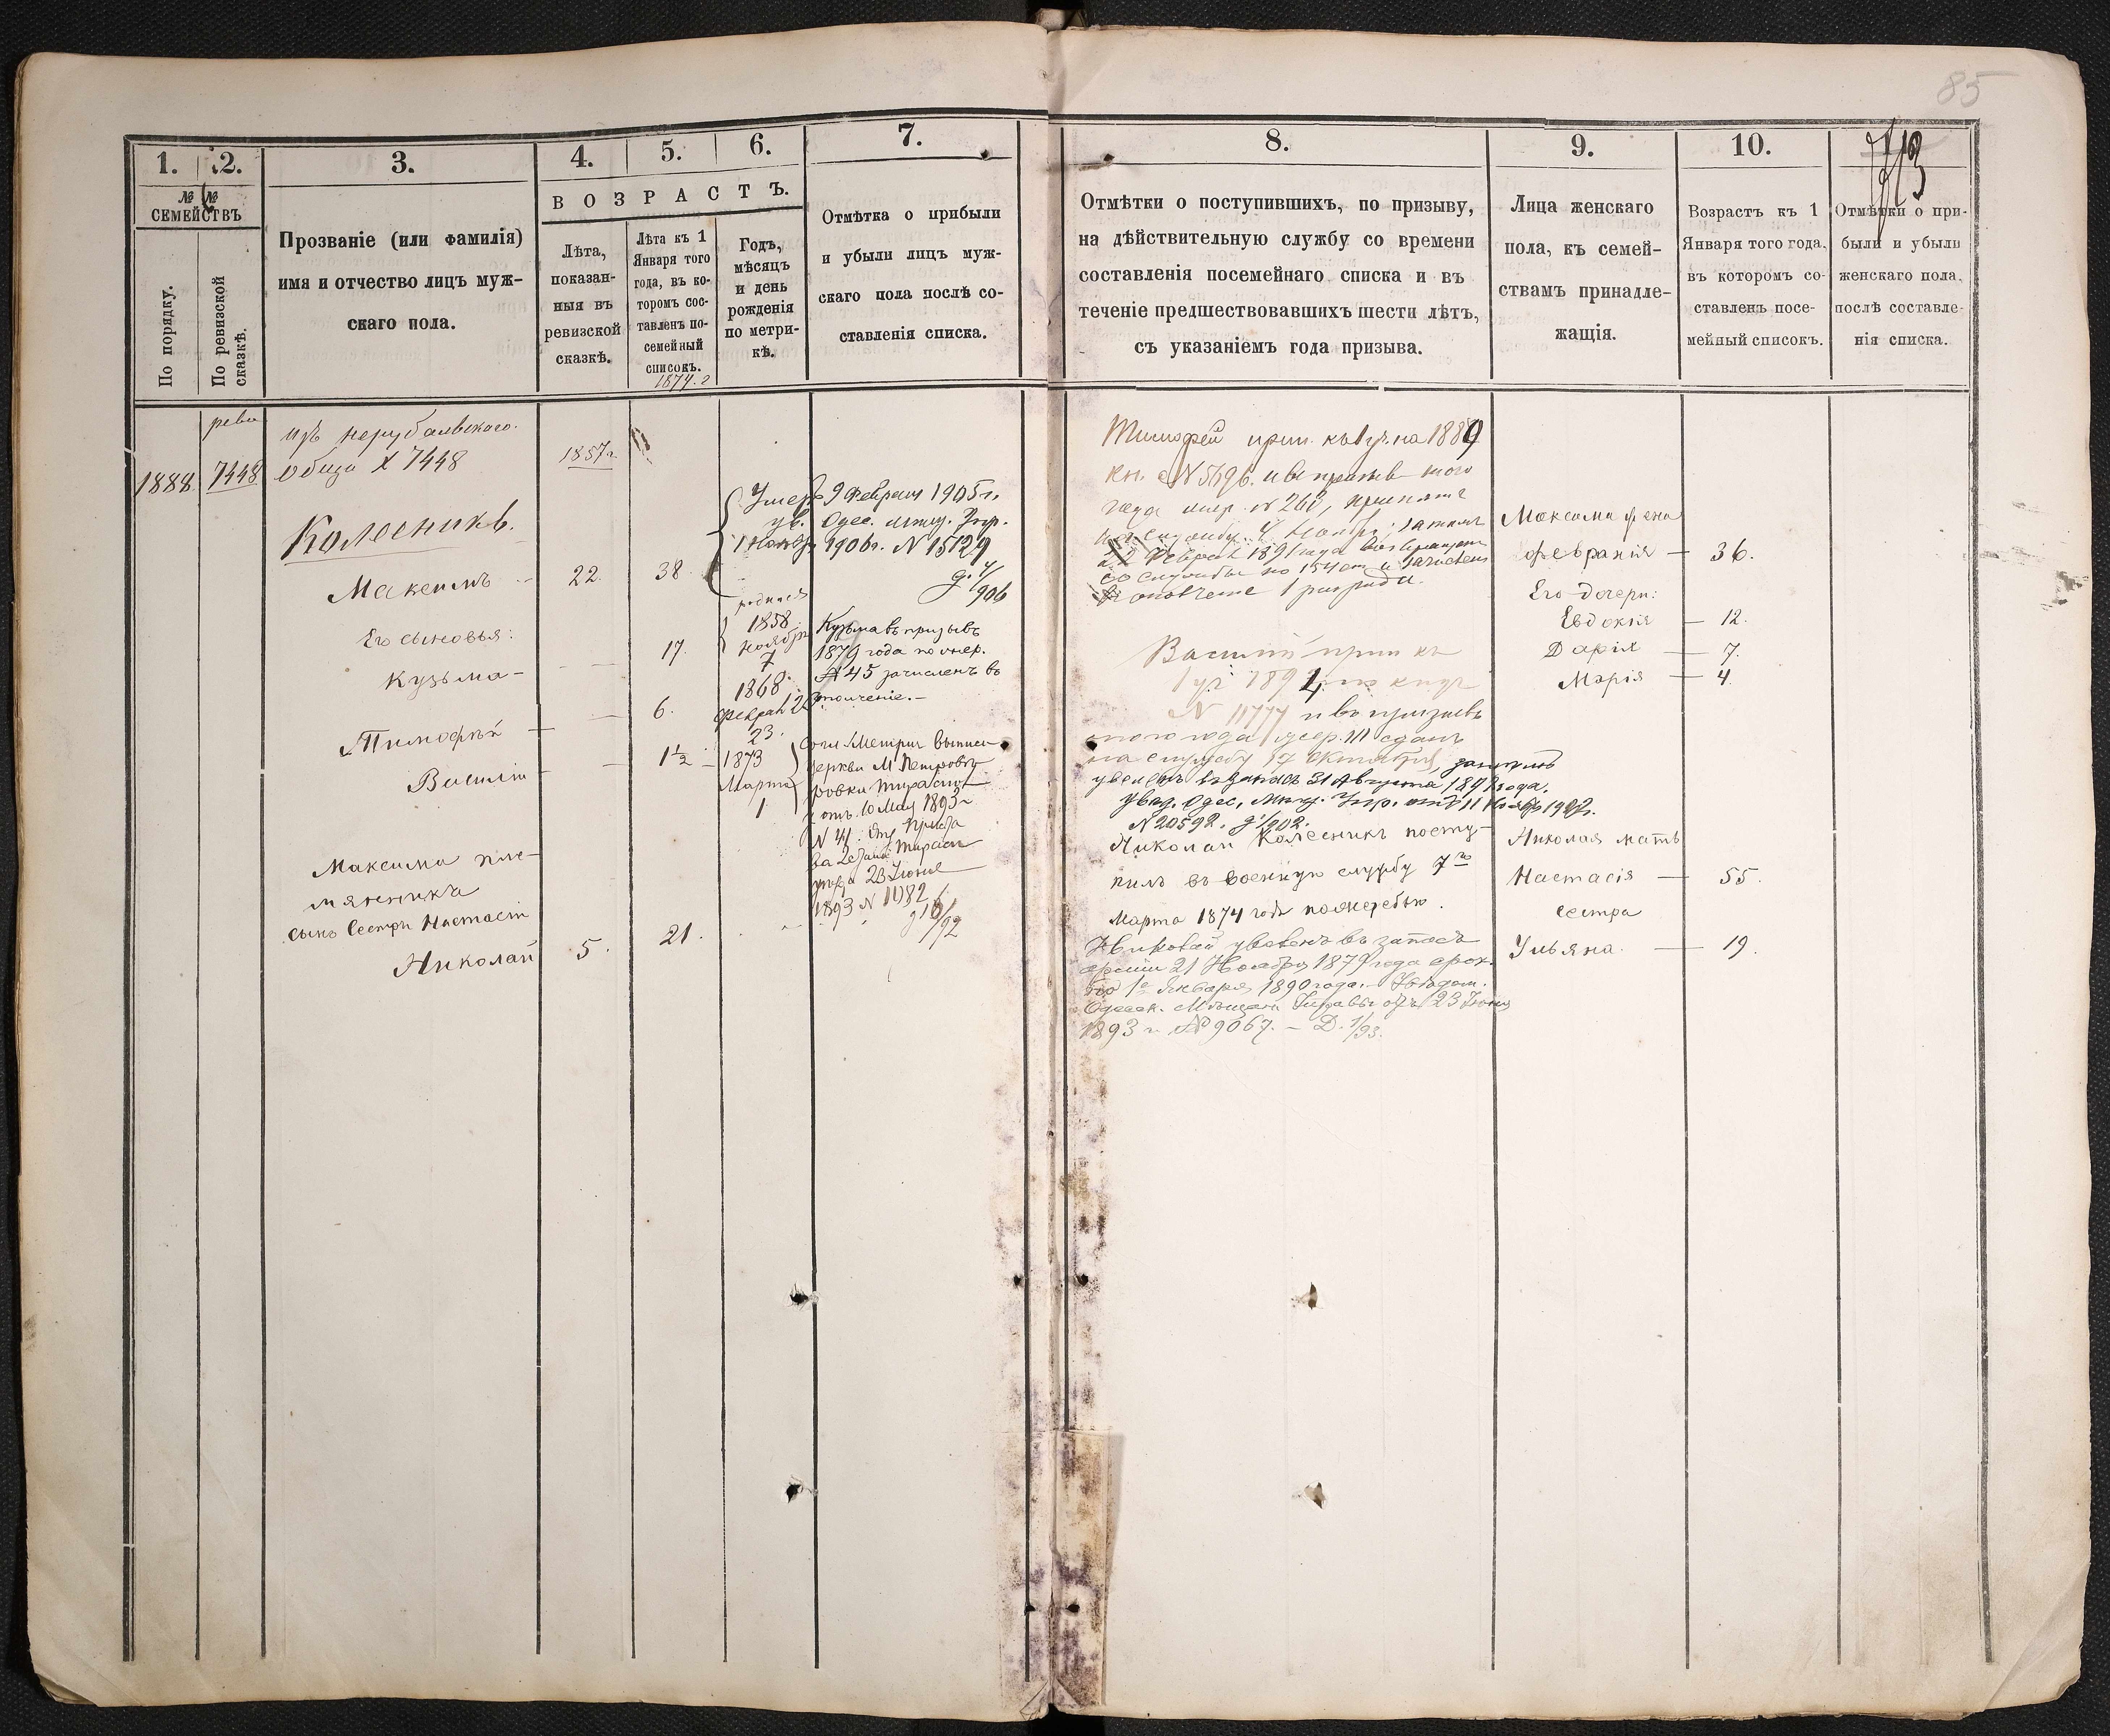 85
1.
2.
№ №
СЕМЕЙСТВЪ
По порядку.
По ревизской
сказкѣ.
3.
Прозваніе (или фамилія)
имя и отчество лицъ муж-
скаго пола.
4.
5.
6.
ВОЗРАСТЪ.
Лѣта,
показан-
ныя въ
ревизской
сказкѣ.
Лѣта къ 1
Января того
года, въ ко-
торомъ сос-
тавленъ по-
семейный
списокъ.
1874. г
Годъ,
мѣсяцъ
и день
рожденія
по метри-
кѣ.
7.
Отмѣтка о прибыли
и убыли лицъ муж-
скаго пола послѣ со-
ставленія списка.
8.
Отмѣтки о поступившихъ, по призыву,
на дѣйствительную службу со времени
составленія посемейнаго списка и въ
теченіе предшествовавшихъ шести лѣтъ,
съ указаніемъ года призыва.
9.
Лица женскаго
пола, къ семей-
ствамъ принадле-
жащія.
10.
Возрастъ къ 1
Января того года,
въ которомъ со-
ставленъ посе-
мейный списокъ.
Отмѣтки о при-
были и убыли
женскаго пола,
послѣ составле-
нія списка.
1888.
реви
7448
изъ
7448
1857 г
Колесникъ.
Максимъ
22.
38
Умеръ 9 Февраля 1905 г.
ув. Одес. мѣщ. Упр.
1906 г. N 15129
906
Его сыновья:
Кузьма -
17.
родился
1858.
Ноября
7
Кузьма въ призывъ
1879 года по жер.
№ 45 зачисленъ въ
ополченіе. -
Тимофѣй
6.
1868.
Феврал
23.
Василій
1½
1873
Марта
1
Метрич выписи
церкви
отъ 10 Мая 1893 г
N 41
23 Іюня
1893 N 1082
Максима пле-
мянника
сынъ Сестры Настасіи
Николай
5.
21.
Тимофей прип. къ 1 уч. на 1889
кн. N 5696. и въ призывъ того
года жер. N 260, принятъ
на службу Ноября; затѣмъ
Февраля 1891 года возвращенъ
со службы по 154 ст и зачисленъ
въ ополченіе 1 разряда.
Василій прип къ
1 уч 1894 по книг
N 11777 и въ призывъ
того года жер. 111 сданъ
на службу 17 Октября, затѣмъ
уволенъ въ запасъ 31 Августа года.
Увед. Одес. Мѣщ. Упр. отъ 11 1902 г.
N 20592. 902.
Николай Колесникъ посту-
пилъ въ военную службу 7 го
Марта 1874 года по жеребью.
Николай уволенъ въ запасъ
арміи 21 Ноября 1879 года срок.
по 1 е Января 1890 года. - Увѣдом.
Одесск. Мѣщан. Управы отъ 23 Іюня
1893 г. № 9067. - Д. 1/93.
Максима жена
Февранія — 36.
Его дочери:
Евдокія — 12.
Дарія — 7.
Марія — 4.
Николая мать
Настасія — 55.
сестра
Ульяна. — 19.